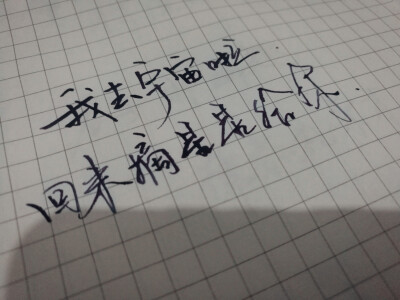 我去宇宙啦
回来摘星星给你.